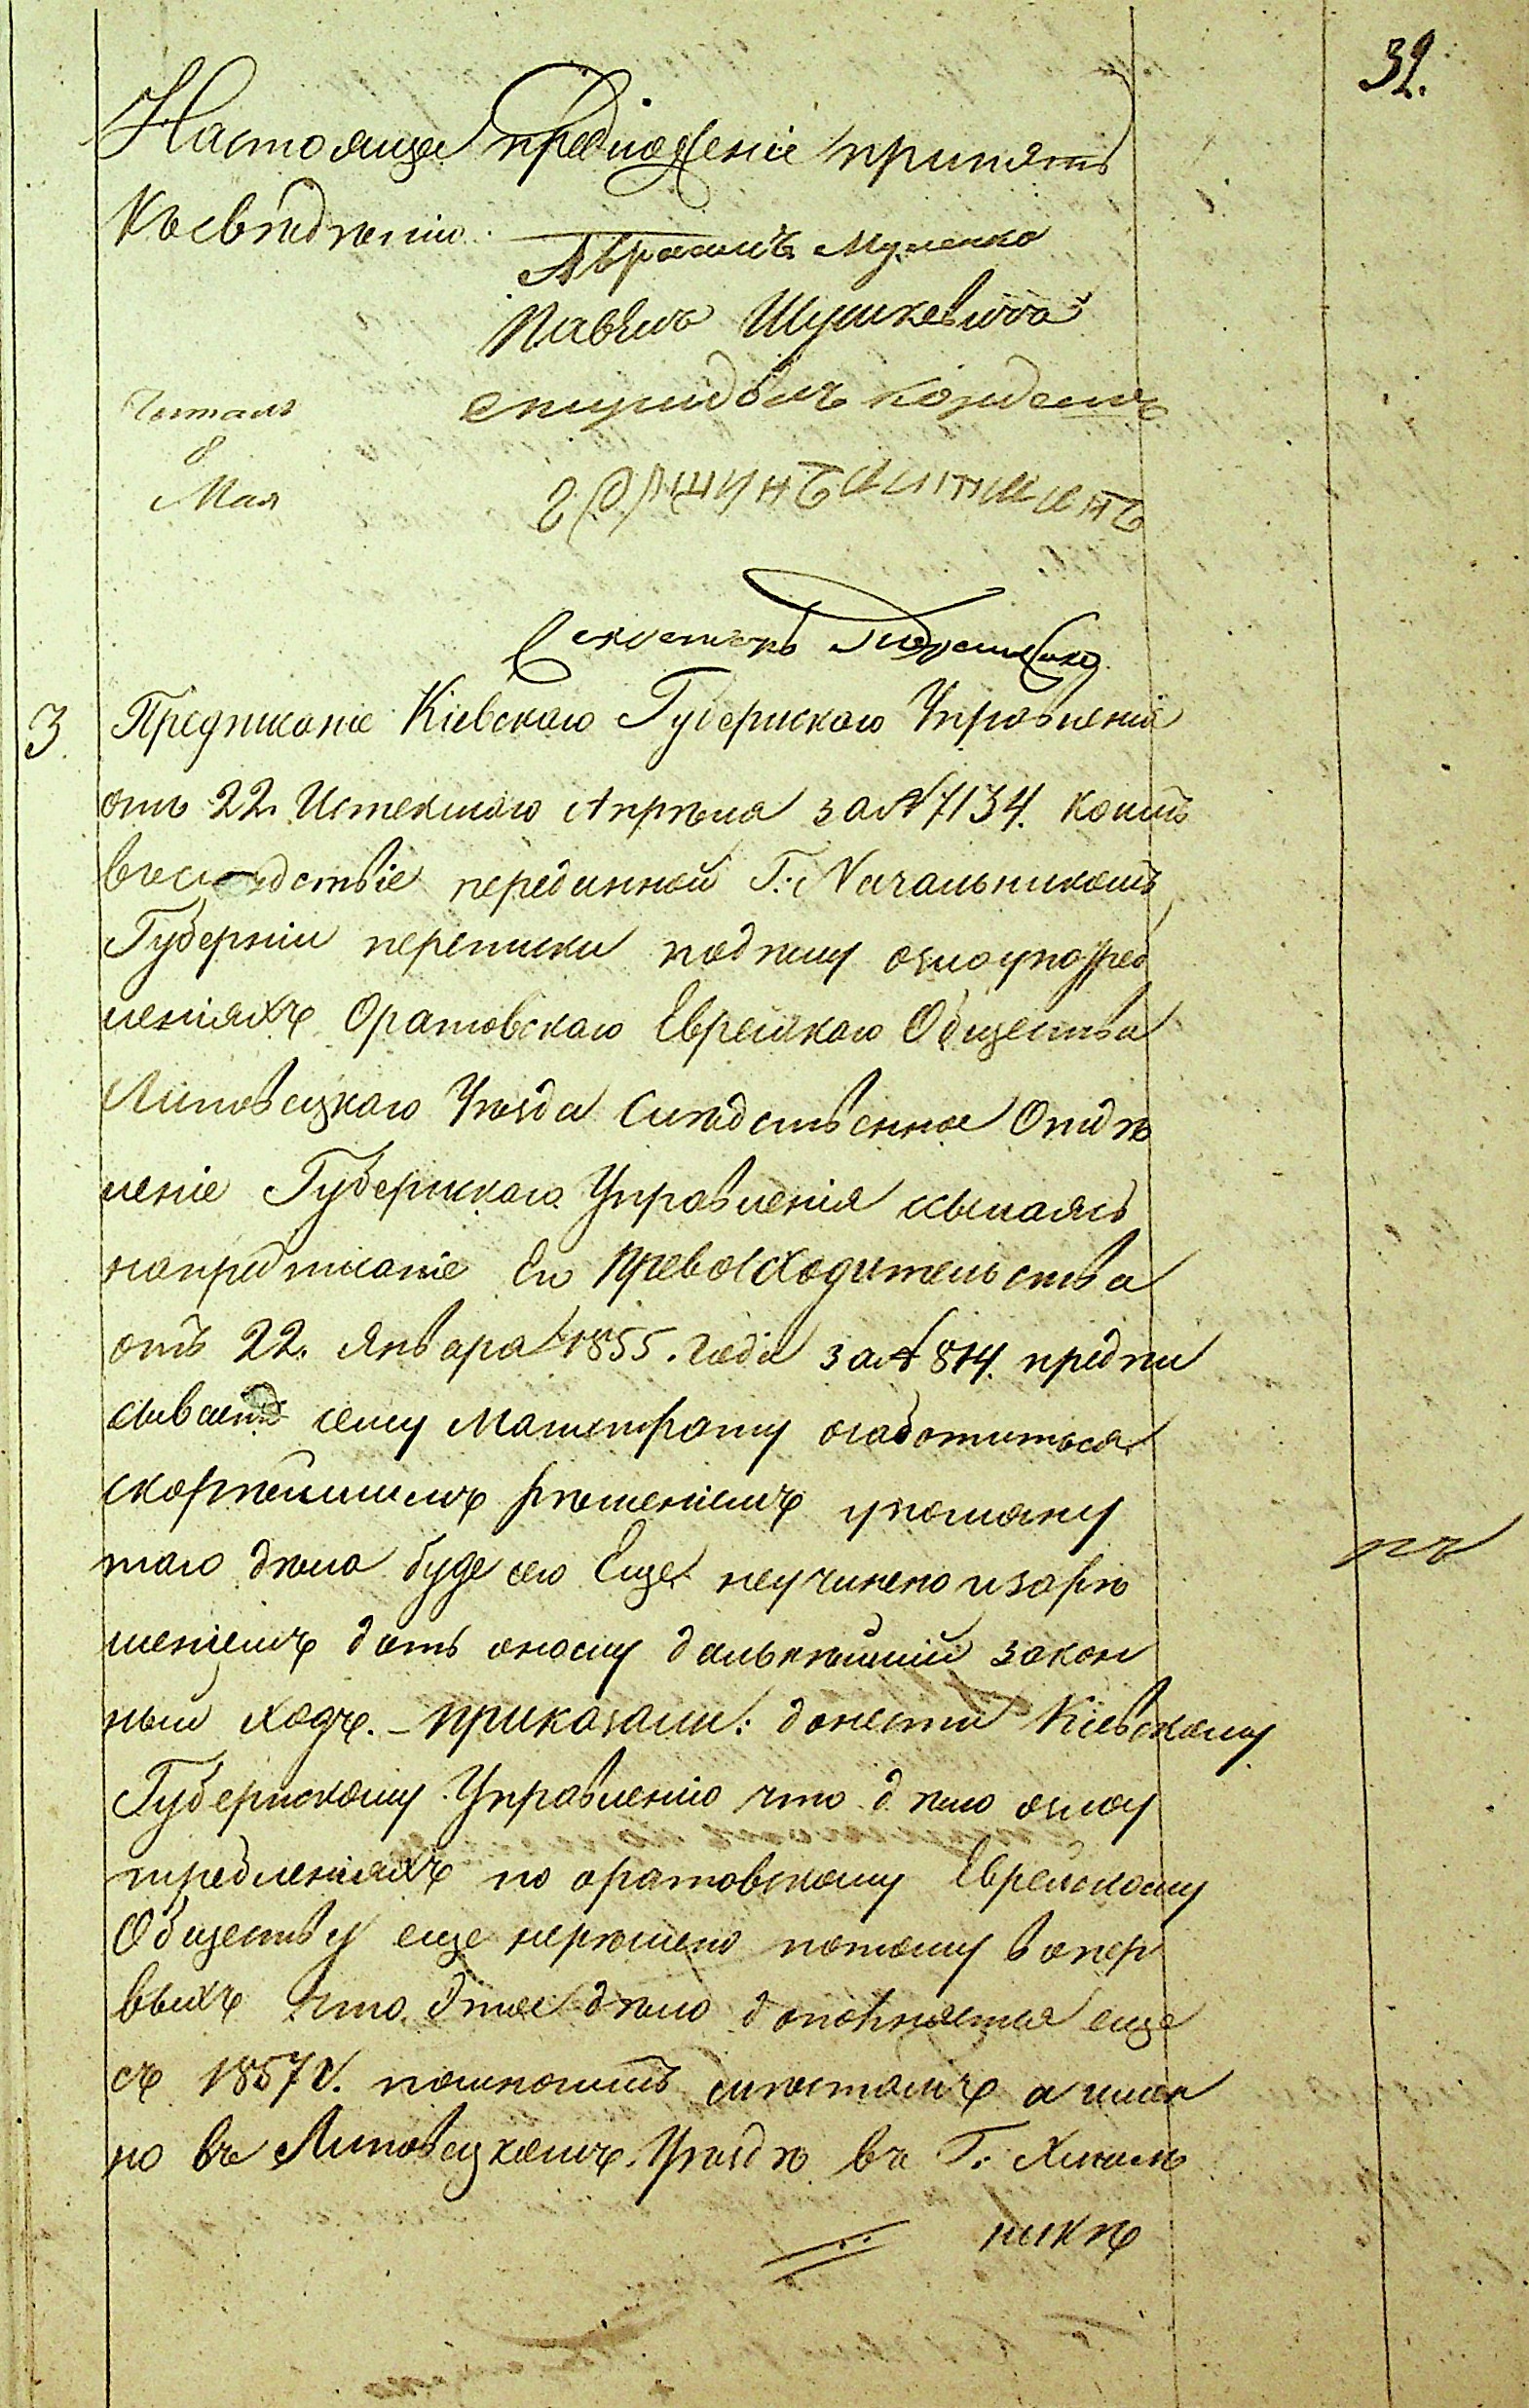 32.
Настоящее предложеніе принять
Къ сведѣнію.
Абрамъ
Павелъ Шушкевичъ
Читалъ
8
Мая
Секретарь
3. Предписаніе Кіевскаго Губернскаго Управленія
отъ 22. Истекшаго Апрѣля за № 7134. коимъ
въслѣдствіе переданной Г. Начальникомъ
Губерніи переписки подѣлу озлоупотреб
леніяхъ Оратовскаго Еврейскаго Общества
Липовецкаго Уѣзда Слѣдственное Отдѣ
леніе Губернскаго Управленія ссылаясь
напредписаніе Его Превосходительства
отъ 22. Января 1855. года за № 814. предпи
сываетъ сему Магистрату озаботиться
скорѣйшимъ рѣшеніемъ упомяну
таго дѣла буде сего Еще неучинено изарѣ
шеніемъ дать оному дальнѣйшій закон
ный ходъ. – приказали: донести Кіевскому
Губернскому Управленію что дѣло озлоу
потребленіяхъ по оратовскому Еврейскому
Обществу еще нерѣшено потому вопер
выхъ что этое дѣло дополняется еще
съ 1857 г. помногимъ мѣстамъ а имен
но въ Липовецкомъ Уѣздѣ въ Г. Хмѣль
никѣ